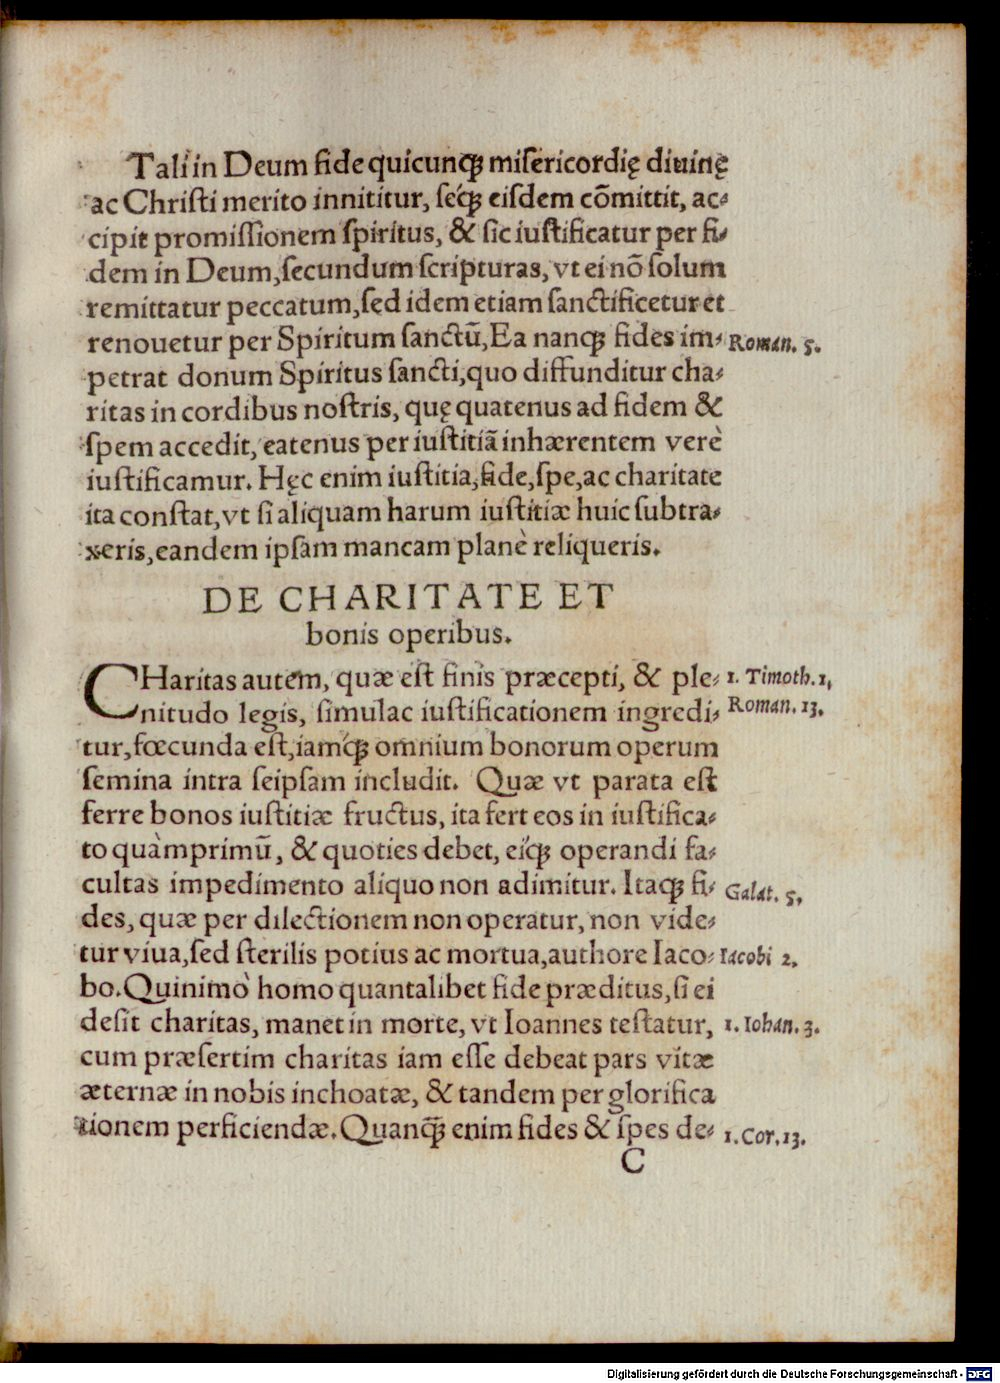 Tali in Deum fide quicunq́; misericordię diuinę
ac Christi merito innititur, seq́; eisdem cōmittit, ac-
cipit promissionem spiritus, & sic iustificatur per fi-
dem in Deum, secundum scripturas, vt ei nō solum
remittatur peccatum, sed idem etiam sanctificetur et
renouetur per Spiritum sanctū, Ea nanq; fides im- Roman. 5.
petrat donum Spiritus sancti, quo diffunditur cha-
ritas in cordibus nostris, quę quatenus ad fidem &
spem accedit, eatenus per iustitiā inhærentem verè
iustificamur. Hęc enim iustitia, fide, spe, ac charitate
ita constat, vt si aliquam harum iustitiæ huic subtra-
xeris, eandem ipsam mancam planè reliqueris.
DE CHARITATE ET
bonis operibus.
CHaritas autem, quæ est finis præcepti, & ple- 1. Timoth. 1,
nitudo legis, simulac iustificationem ingredi- Roman. 13.
tur, fœcunda est, iamq́; omnium bonorum operum
semina intra seipsam includit. Quæ vt parata est
ferre bonos iustitiæ fructus, ita fert eos in iustifica-
to quàmprimū, & quoties debet, eiq́; operandi fa-
cultas impedimento aliquo non adimitur. Itaq; fi- Galat. 5,
des, quæ per dilectionem non operatur, non vide-
tur viua, sed sterilis potius ac mortua, authore Iaco- Iacobi 2.
bo. Quinimò homo quantalibet fide præditus, si ei
desit charitas, manet in morte, vt Ioannes testatur, 1. Iohan. 3.
cum præsertim charitas iam esse debeat pars vitæ
æternæ in nobis inchoatæ, & tandem per glorifica
tionem perficiendæ. Quanq̃; enim fides & spes de- 1. Cor. 13.
C
Digitalisierung gefördert durch die Deutsche Forschungsgemeinschaft - DFG